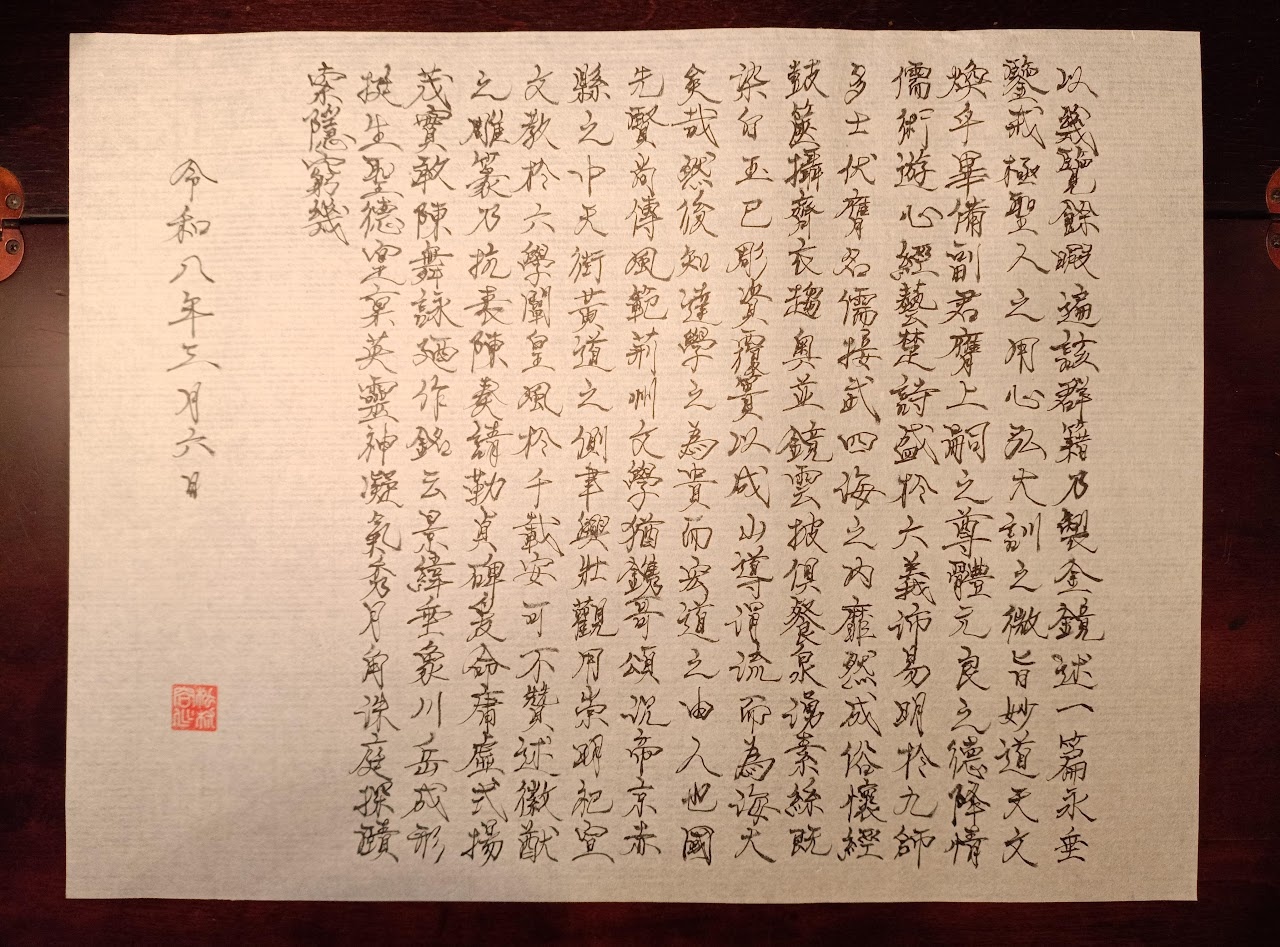 以幾覽餘暇遍該群籍乃製金鏡述一篇永垂
鑒戒極聖人之用心弘大訓之微旨妙道天文
煥乎畢備副君膺上嗣之尊體元良之德降情
儒術游心經藝楚詩盛於六義沛易明於九師
多士伏膺名儒接武四海之內靡然成俗懷經
鼓篋攝齊衣趨奧並鏡雲披俱餐泉湧素絲既
染白玉已彫資覆簣以成山導涓流而為海大
矣哉然後知達學之為貴而宏道之由人也國
先賢尚傳風範荊州文學猶鐫哥頌況帝京赤
縣之中天街黃道之側聿興壯觀用崇明祀宣
文教於六學闡皇風於千載安可不贊述徽猷
之雕篆乃抗表陳奏請勒貞碑爰命庸虛式揚
茂實敢陳舞詠廼作銘云景緯垂象川岳成形
挺生聖德寔稟英靈神凝氣秀月角誅庭探賾
索隱窮幾
令和八年三月六日